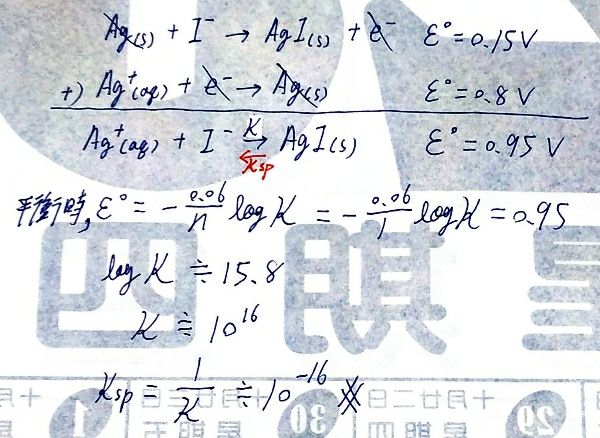 Ag(s) + I⁻ → AgI(s) + e⁻ ℰ° = 0.15 V
+) Ag⁺(aq) + e⁻ → Ag(s) ℰ° = 0.8 V
Ag⁺(aq) + I⁻ K⇌Ksp AgI(s) ℰ° = 0.95 V
平衡時, ℰ° = -0.06/n log K = -0.06/1 log K = 0.95
log K ≒ 15.8
K ≒ 10¹⁶
Ksp = 1/K ≒ 10⁻¹⁶
星期四
29 十月廿二日 星期四 30 十月廿三日 星期五 1